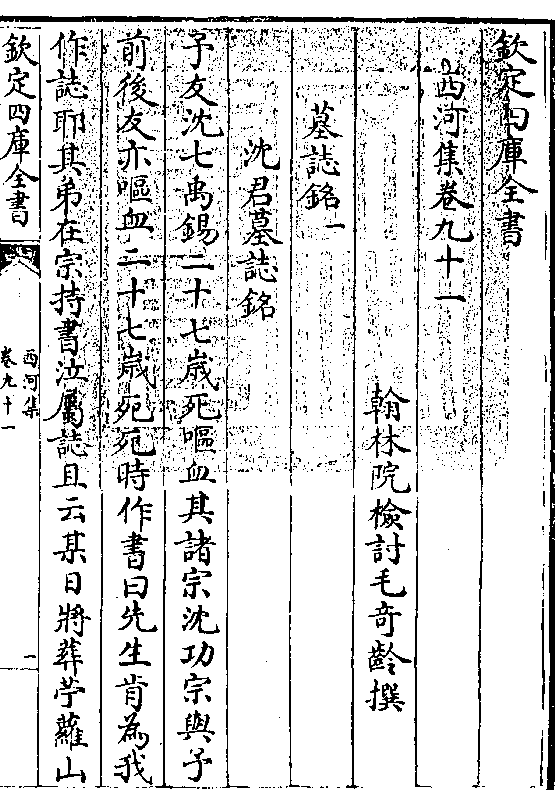 欽定四庫全書
西河集卷九十一
翰林院檢討毛奇齡撰
墓誌銘一
沈君墓誌銘
予友沈七禹錫二十七歲死嘔血其諸宗沈功宗與予
前後友亦嘔血二十七歲死死時作書曰先生肯為我
作誌耶其弟在宗持書泣屬誌且云某日將葬苧蘿山
欽定四庫全書
西河集
卷九十一
一